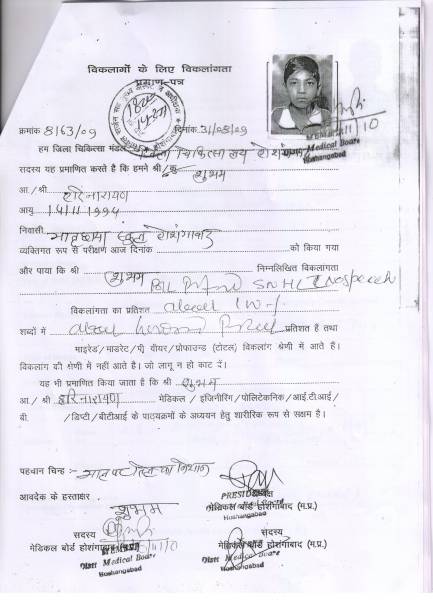 विकलांगों के लिए विकलांगता
प्रमाण-पत्र
क्रमांक 8/63/09 दिनांक 31/08/09
MEMBER
Medical Board
Hoshangabad
11/10
हम जिला चिकित्सा मंडल जिला चिकित्सालय होशंगाबाद
सदस्य यह प्रमाणित करते है कि हमने श्री/कु शुभम
आ./श्री हरिनारायण
आयु 14/11/1994
निवासी मातृछाया स्कूल होशंगाबाद
व्यक्तिगत रूप से परीक्षण आज दिनांक को किया गया
और पाया कि श्री शुभम निम्नलिखित विकलांगता
B/L SNHL
विकलांगता का प्रतिशत
शब्दों में प्रतिशत है तथा
माइरेड/माडरेट/पी वीयर/प्रोफाउन्ड (टोटल) विकलांग श्रेणी में आते है।
विकलांग की श्रेणी में नहीं आते है। जो लागू न हो काट दें।
यह भी प्रमाणित किया जाता है कि श्री शुभम
आ./श्री हरिनारायण मेडिकल / इंजिनीरिंग/पोलिटेकनिक/आई.टी.आई/
बी. /डिप्टी/बीटीआई के पाठयक्रमों के अध्ययन हेतु शारीरिक रूप से सक्षम है।
पहचान चिन्ह :- का निशान
आवदेक के हस्ताक्षर . शुभम
PRESIDENT
मेडिकल बोर्ड होशंगाबाद (म.प्र.)
Hoshangabad
सदस्य सदस्य
मेडिकल बोर्ड होशंगाबाद (म.प्र.) मेडिकल बोर्ड होशंगाबाद (म.प्र.)
Distt Medical Board Distt Medical Board
Hoshangabad Hoshangabad